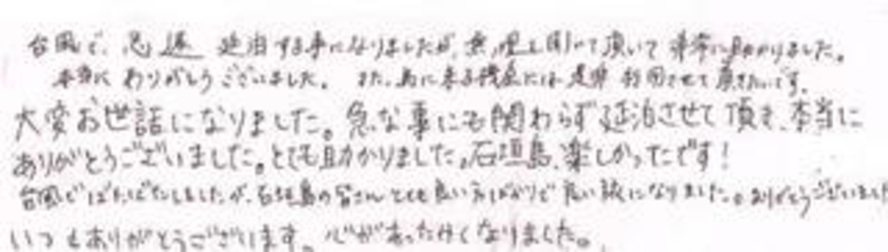 台風で、急遽 延泊する事になりましたが、無理を聞いて頂いて 非常に助かりました。
本当に ありがとうございました。 また、島に来る機会には、是非 利用させて頂きたいです。
大変お世話になりました。急な事にも関わらず延泊させて頂き、本当に
ありがとうございました。とても助かりました。石垣島、楽しかったです！
台風でばたばたしましたが、石垣島の皆さんとても良い方ばかりで良い旅になりました。ありがとうございました
いつもありがとうございます。心があったかくなりました。